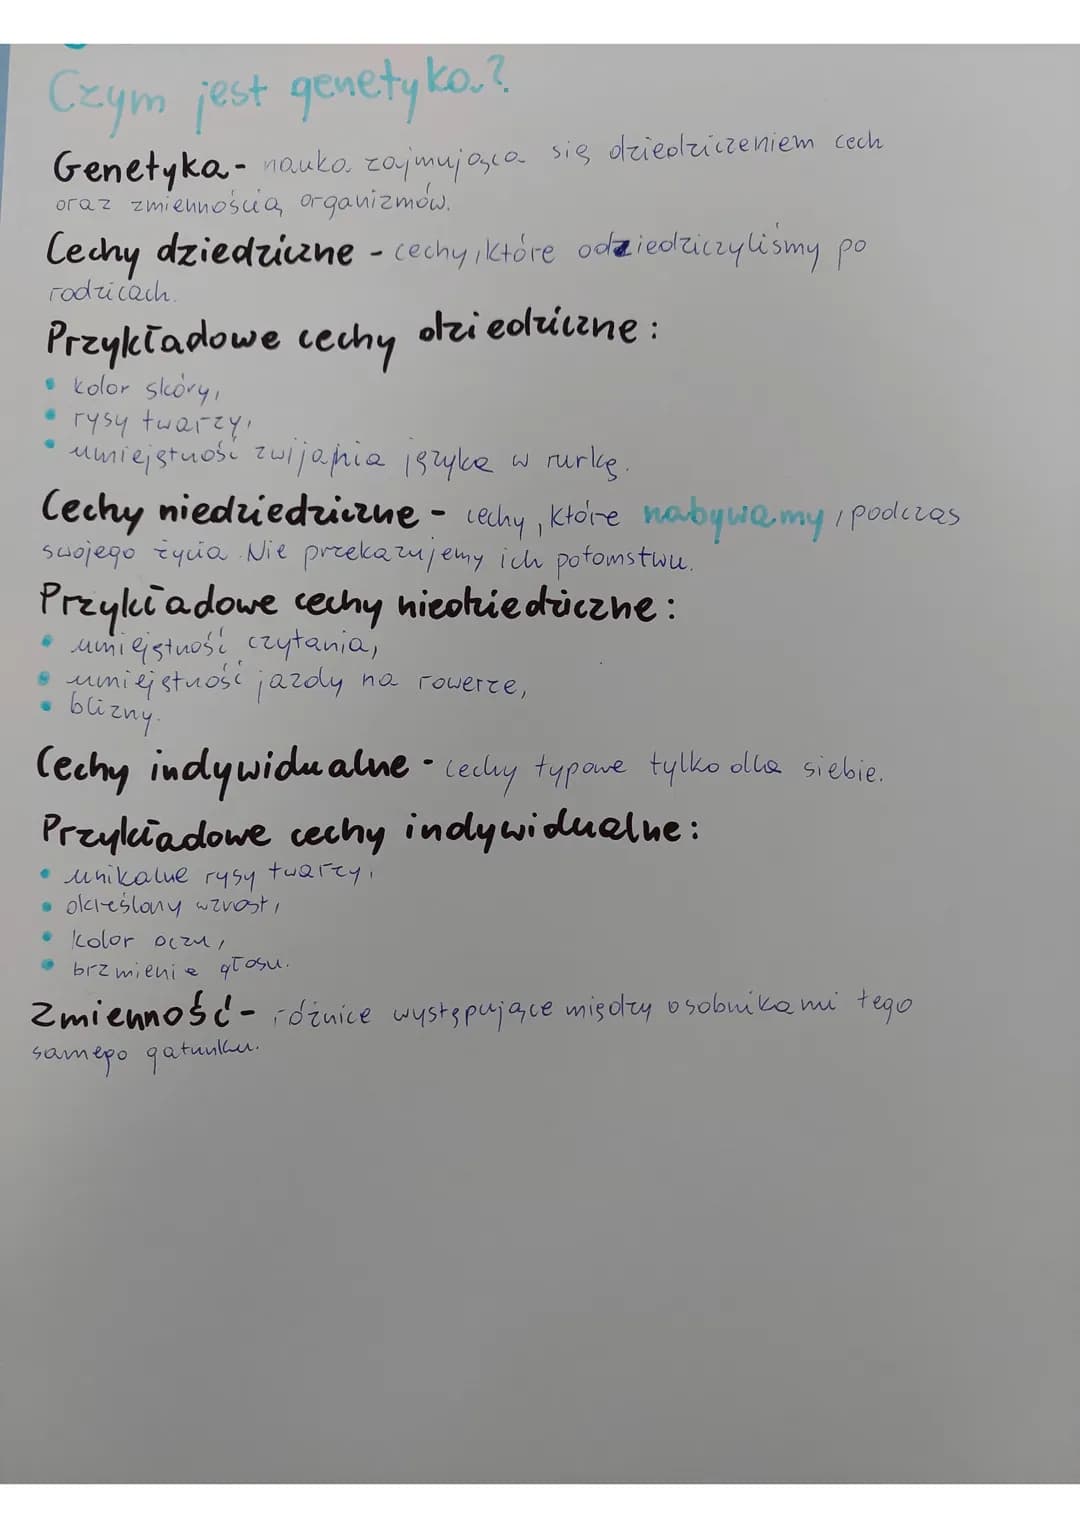 Czym jest genetyka?
Genetyka - nauka zajmująca się dziedziczeniem cech
oraz zmiennością organizmów.
Cechy dziedziczne - cechy, które odziedziczyliśmy po
rodzicach.
Przykładowe cechy dziedziczne:
• kolor skóry,
• rysy twarzy,
• umiejętność zwijania języka w rurkę.
Cechy niedziedziczne - cechy, które nabywamy, podczas
swojego życia. Nie przekazujemy ich potomstwu.
Przykładowe cechy niedziedziczne:
• umiejętność czytania,
• umiejętność jazdy na rowerze,
• blizny.
Cechy indywidualne - cechy typowe tylko dla siebie.
Przykładowe cechy indywidualne:
• unikalne rysy twarzy,
• określony wzrost,
• kolor oczu,
• brzmienie głosu.
Zmienność - różnice występujące między osobnikami tego
samego gatunku.